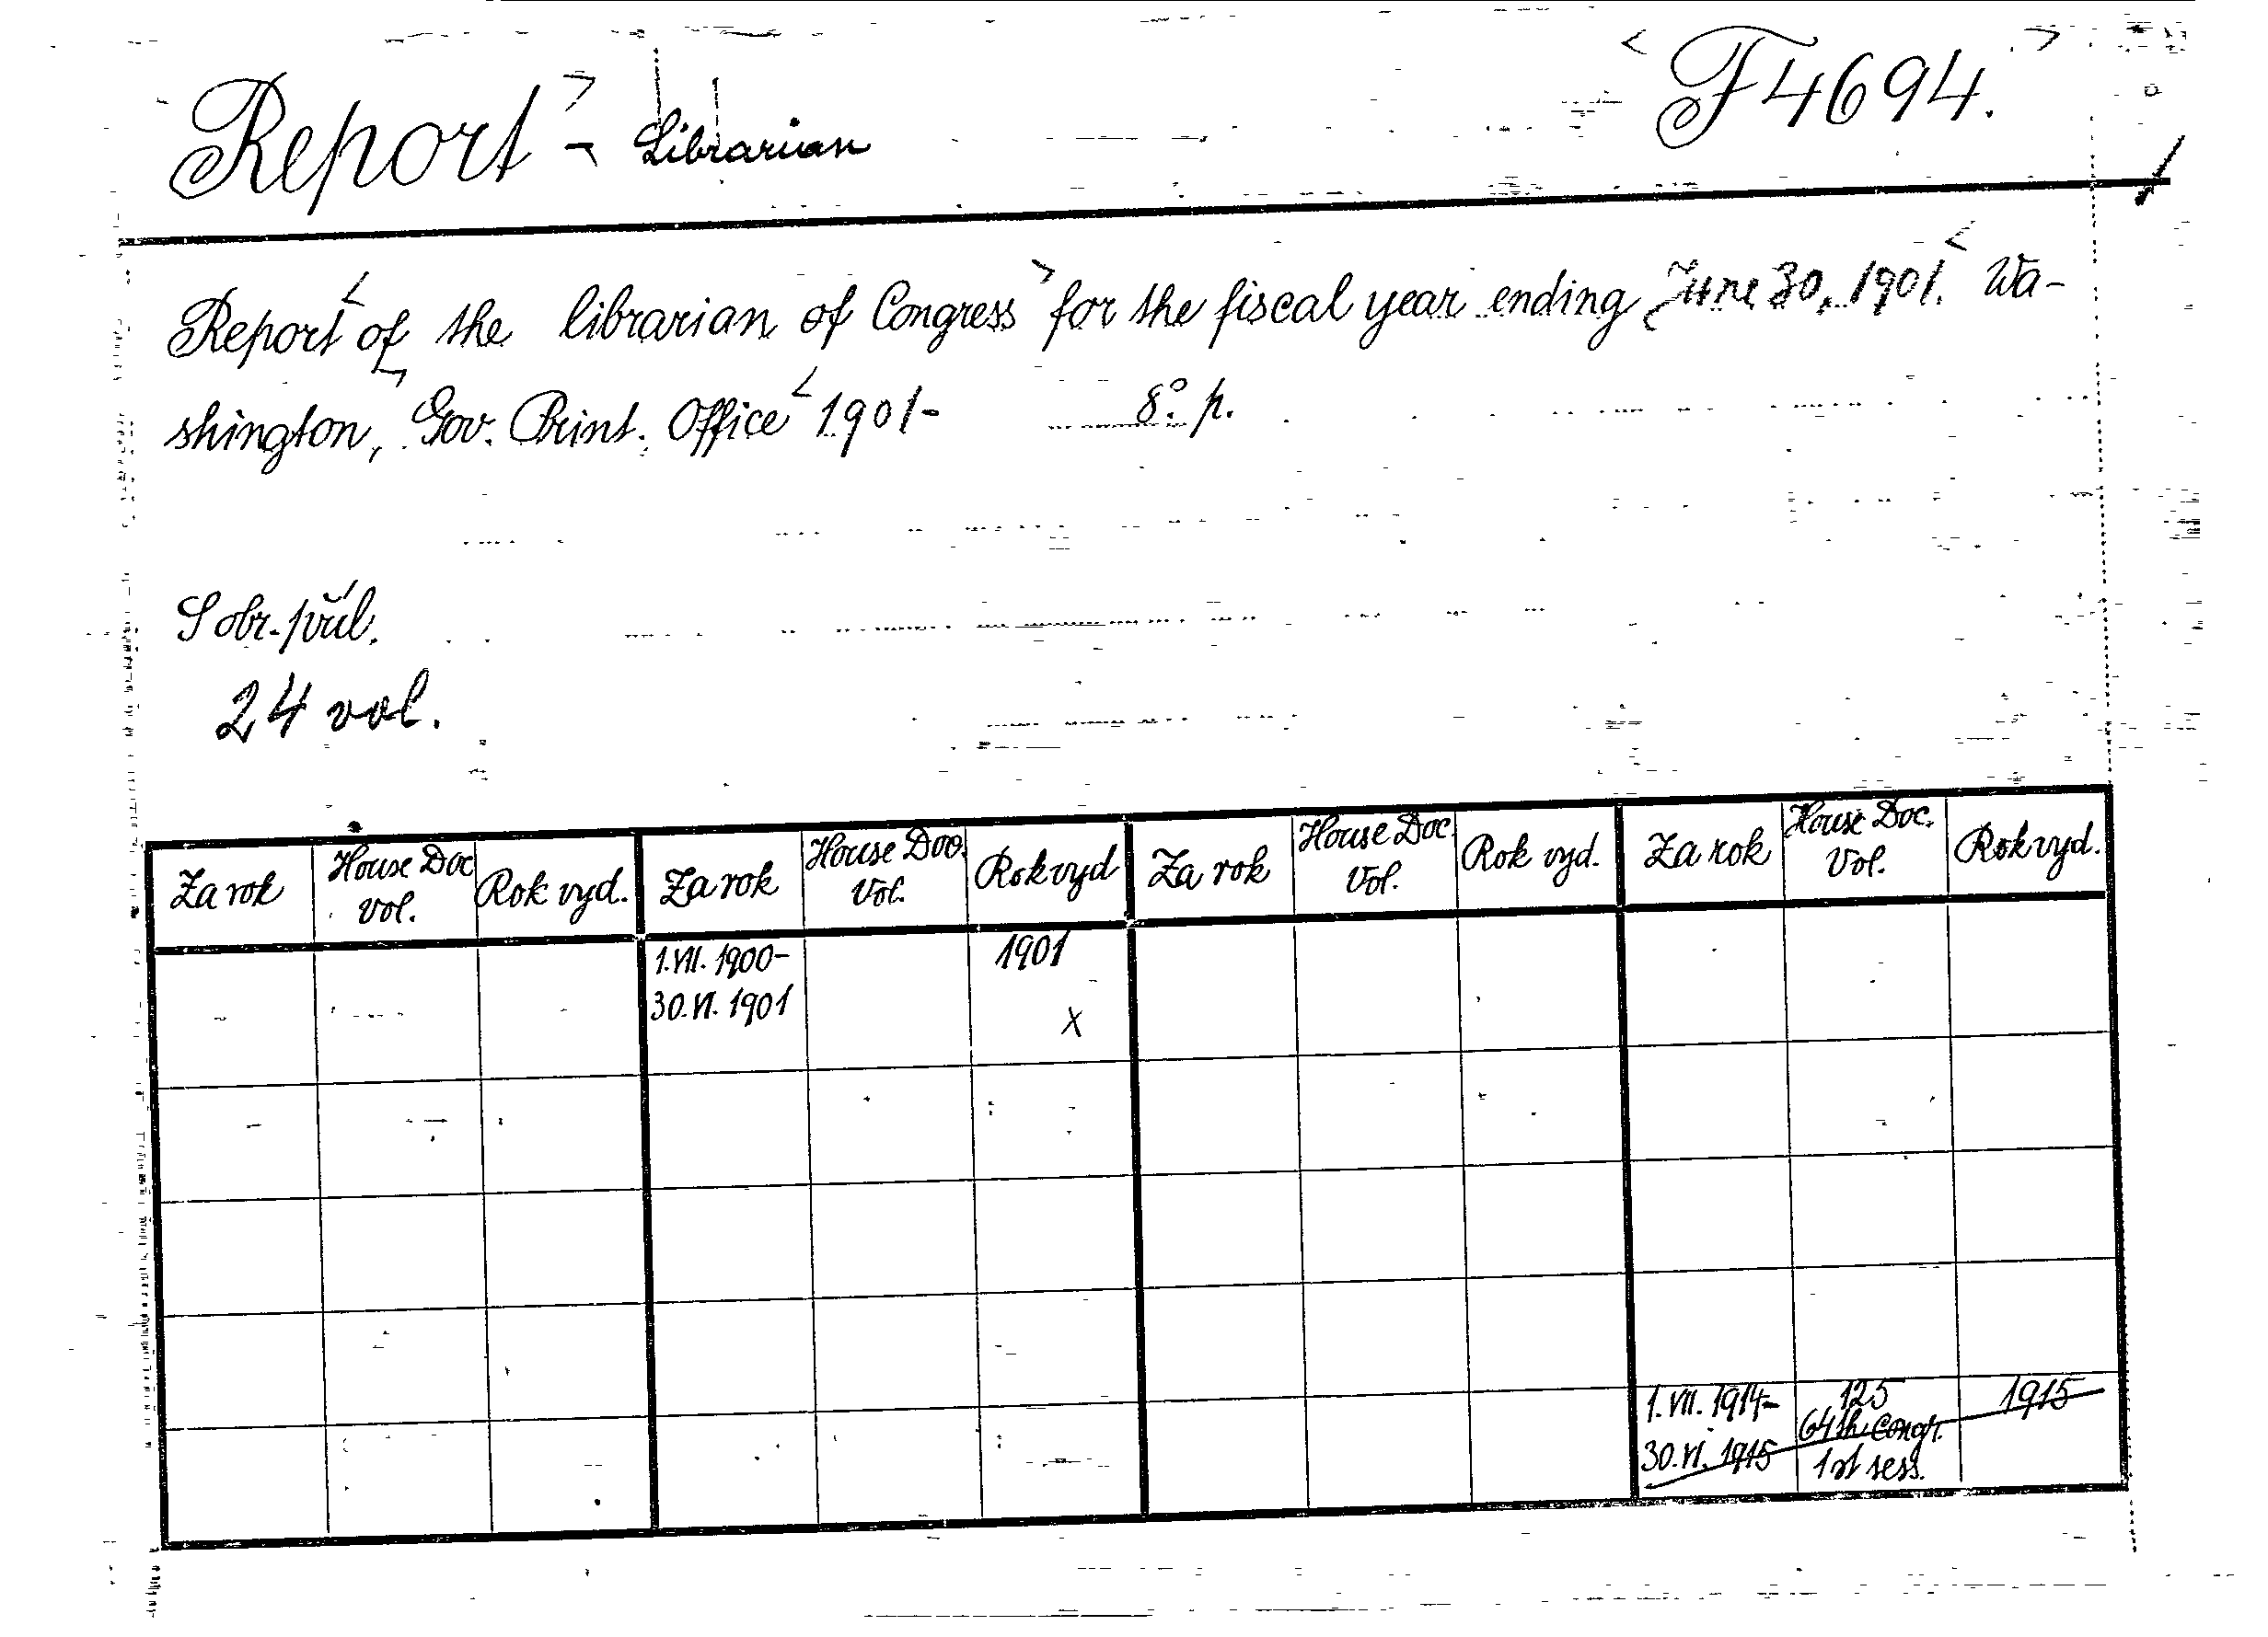 Report - Librarian
F 4694.
Report of the librarian of Congress for the fiscal year ending June 30, 1901. Wa-
shington, Gov. Print. Office 1901- 8° p.
S obr. příl.
24 vol.
Za rok House Doc Vol. Rok vyd. Za rok House Doc. Vol. Rok vyd Za rok House Doc. Vol. Rok vyd. Za rok House Doc. Vol. Rok vyd.
1.VII. 1900- 1901
30.VI. 1901 X
1.VII. 1914- 125 1915
64th Congr.
30.VI. 1915 1st sess.